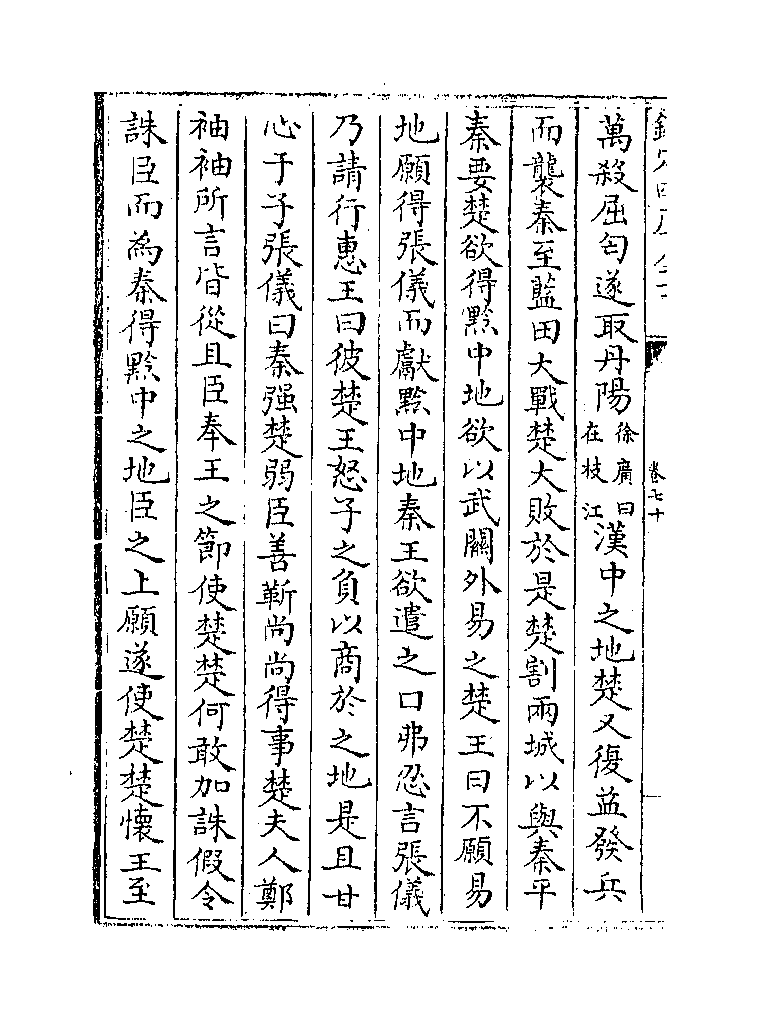 欽定四庫全書
卷七十
萬殺屈匄遂取丹陽徐廣曰在枝江漢中之地楚又復益發兵
而襲秦至藍田大戰楚大敗於是楚割兩城以與秦平
秦要楚欲得黔中地欲以武關外易之楚王曰不願易
地願得張儀而獻黔中地秦王欲遣之口弗忍言張儀
乃請行惠王曰彼楚王怒子之負以商於之地是且甘
心于子張儀曰秦强楚弱臣善靳尚尚得事楚夫人鄭
袖袖所言皆從且臣奉王之節使楚楚何敢加誅假令
誅臣而為秦得黔中之地臣之上願遂使楚楚懷王至